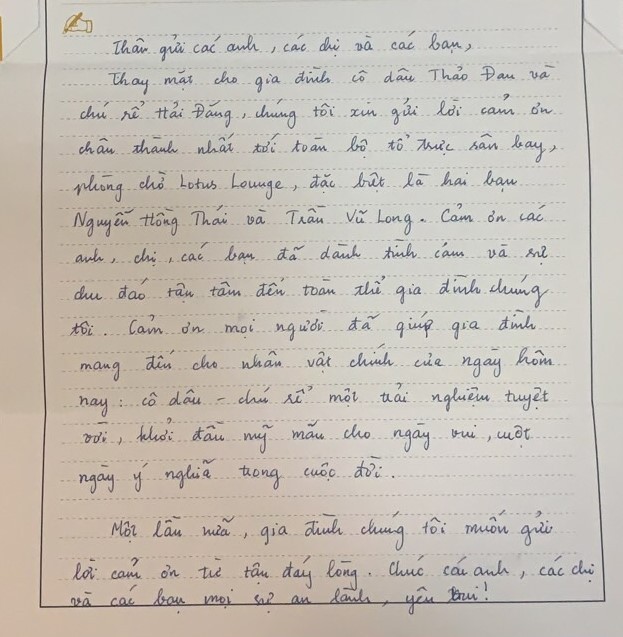 Thân gửi các anh, các chị và các bạn,
Thay mặt cho gia đình cô dâu Thảo Đan và
chú rể Hải Đăng, chúng tôi xin gửi lời cảm ơn
chân thành nhất tới toàn bộ tổ trực sân bay,
phòng chờ Lotus Lounge, đặc biệt là hai bạn
Nguyễn Hồng Thái và Trần Vũ Long. Cảm ơn các
anh, chị, các bạn đã dành tình cảm và sự
chu đáo tận tâm đến toàn thể gia đình chúng
tôi. Cảm ơn mọi người đã giúp gia đình
mang đến cho nhân vật chính của ngày hôm
nay: cô dâu - chú rể một trải nghiệm tuyệt
vời, khởi đầu mỹ mãn cho ngày vui, một
ngày ý nghĩa trong cuộc đời.
Một lần nữa, gia đình chúng tôi muốn gửi
lời cảm ơn từ tận đáy lòng. Chúc các anh, các chị
và các bạn mọi sự an lành, yên vui!